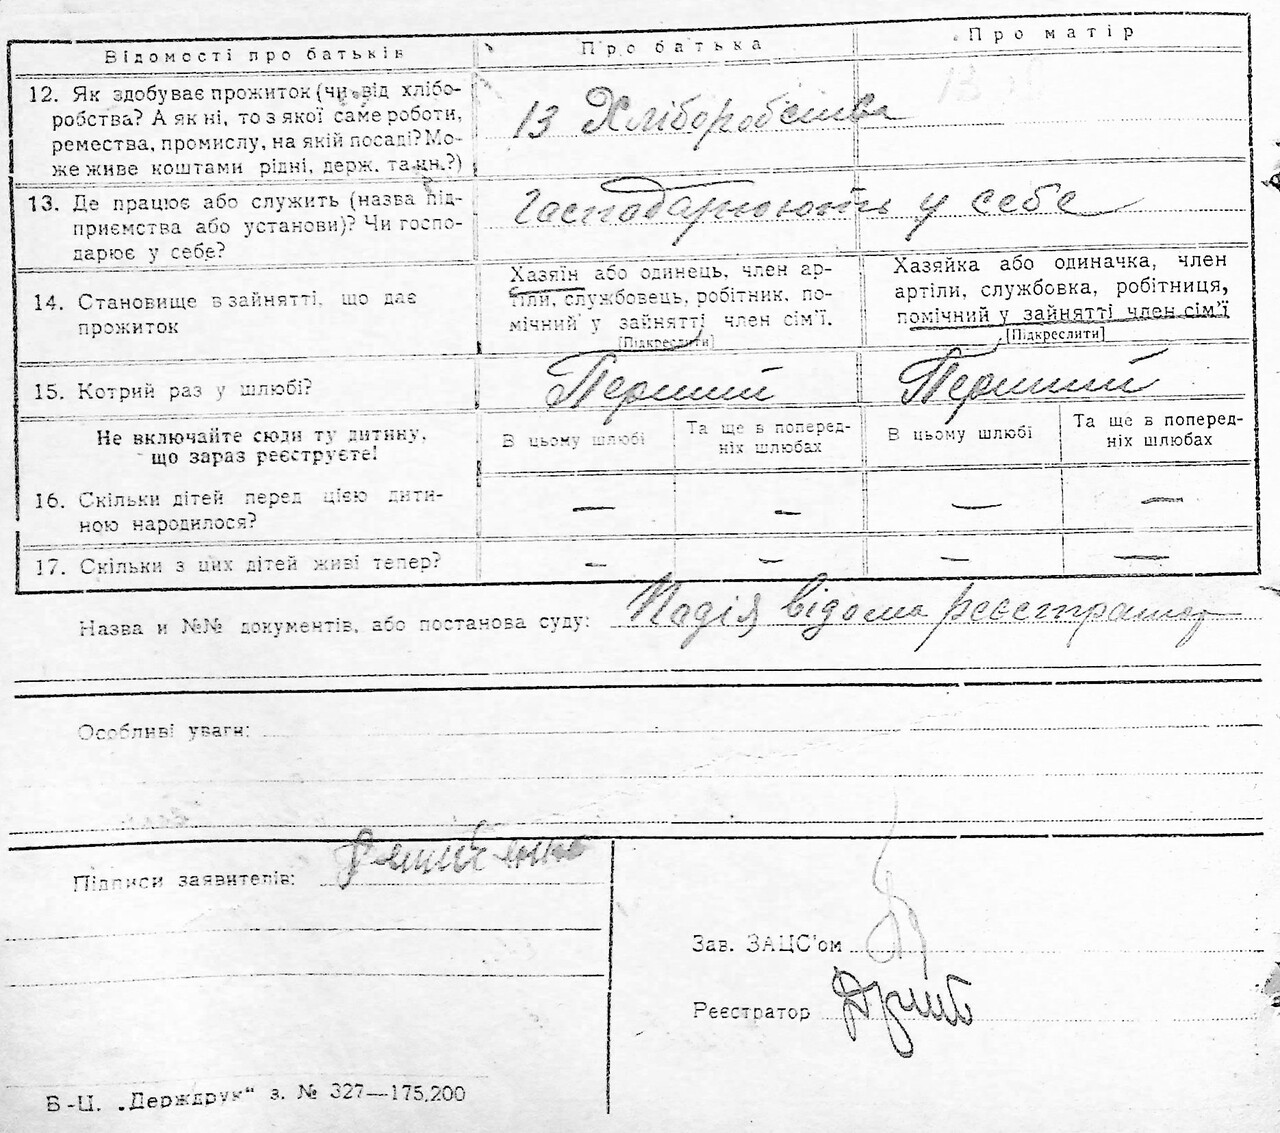 Відомості про батьків Про батька Про матір
12. Як здобуває прожиток (чи від хлібо-
робства? А як ні, то з якої саме роботи,
ремества, промислу, на якій посаді? Мо-
же живе коштами рідні, держ. та ин.?)
Із Хліборобства
13. Де працює або служить (назва під-
приємства або установи)? Чи госпо-
дарює у себе?
Господарюють у себе
14. Становище в зайнятті, що дає
прожиток
Хазяїн або одинець, член ар-
тіли, службовець, робітник, по-
мічний у зайнятті член сім'ї.
[Підкреслити]
Хазяйка або одиначка, член
артіли, службовка, робітниця,
помічний у зайнятті член сім'ї
[Підкреслити]
15. Котрий раз у шлюбі? Перший Перший
Не включайте сюди ту дитину,
що зараз реєструєте!
В цьому шлюбі
Та ще в поперед-
ніх шлюбах
В цьому шлюбі
Та ще в поперед-
ніх шлюбах
16. Скільки дітей перед цією дити-
ною народилося?
— — — —
17. Скільки з цих дітей живі тепер? — — — —
Назва и №№ документів, або постанова суду: Подія відома реєстратор
Особливі уваги:
Підписи заявителів:
Зав. ЗАЦС'ом
Реєстратор
Б-Ц. „Держдрук“ з. № 327—175.200